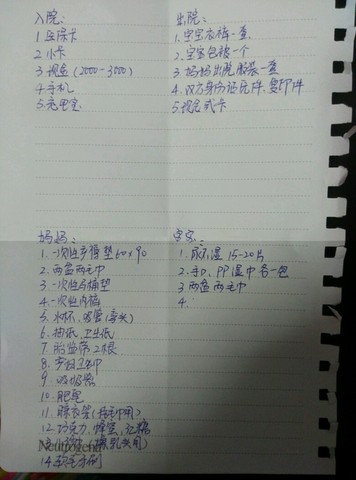 入院：
1 医保卡
2 小卡
3 现金（2000-3000）
4 手机
5. 充电宝
出院：
1. 宝宝衣裤一套
2. 宝宝包被一个
3 妈妈出院服装一套
4. 双方身份证原件、复印件
5 现金或卡
妈妈：
1. 一次性产褥垫 60×90
2. 两盆两毛巾
3 一次性马桶垫
4. 一次性内裤
5. 水杯、吸管（弯头）
6. 抽纸、卫生纸
7. 胎监带 2根
8. 产妇卫生巾
9. 吸奶器
10. 肥皂
11. 晾衣架（挂毛巾用）
12 巧克力、蜂蜜、红糖
14
宝宝：
1. 尿不湿 15-20片
2. 手口、PP湿巾各一包
3 两盆两毛巾
4.
Neutrogena